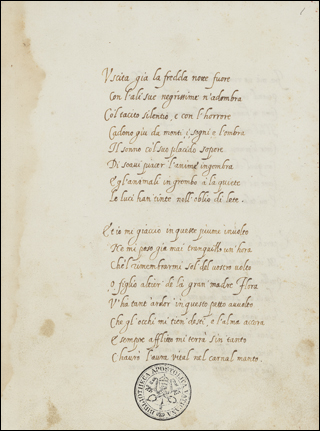 Uscita già la fredda notte fuore
Con l'ali sue negrissime n'adombra
Col tacito silentio, e con l'horrore
Cadono giù da monti i sogni e l'ombra
Il sonno col suo placido sopore
Di soavi piacer l'anime ingombra
E gl'animali in grembo a la quiete
Le luci han tinte nell'oblio di lete.
Et io mi giaccio in queste piume involto
Nè mi poso già mai tranquillo un'hora
Che'l rimembrarmi sel del vostro volto
O figlio altier de la gran madre Flora
V'ha tant'ardor in questo petto accolto
Che gl'occhi mi tien desti, e l'alma accora
E sempre afflitto mi terrà sin tanto
C'haurò l'aura vital nel carnal manto.
BIBLIOTHECA APOSTOLICA VATICANA